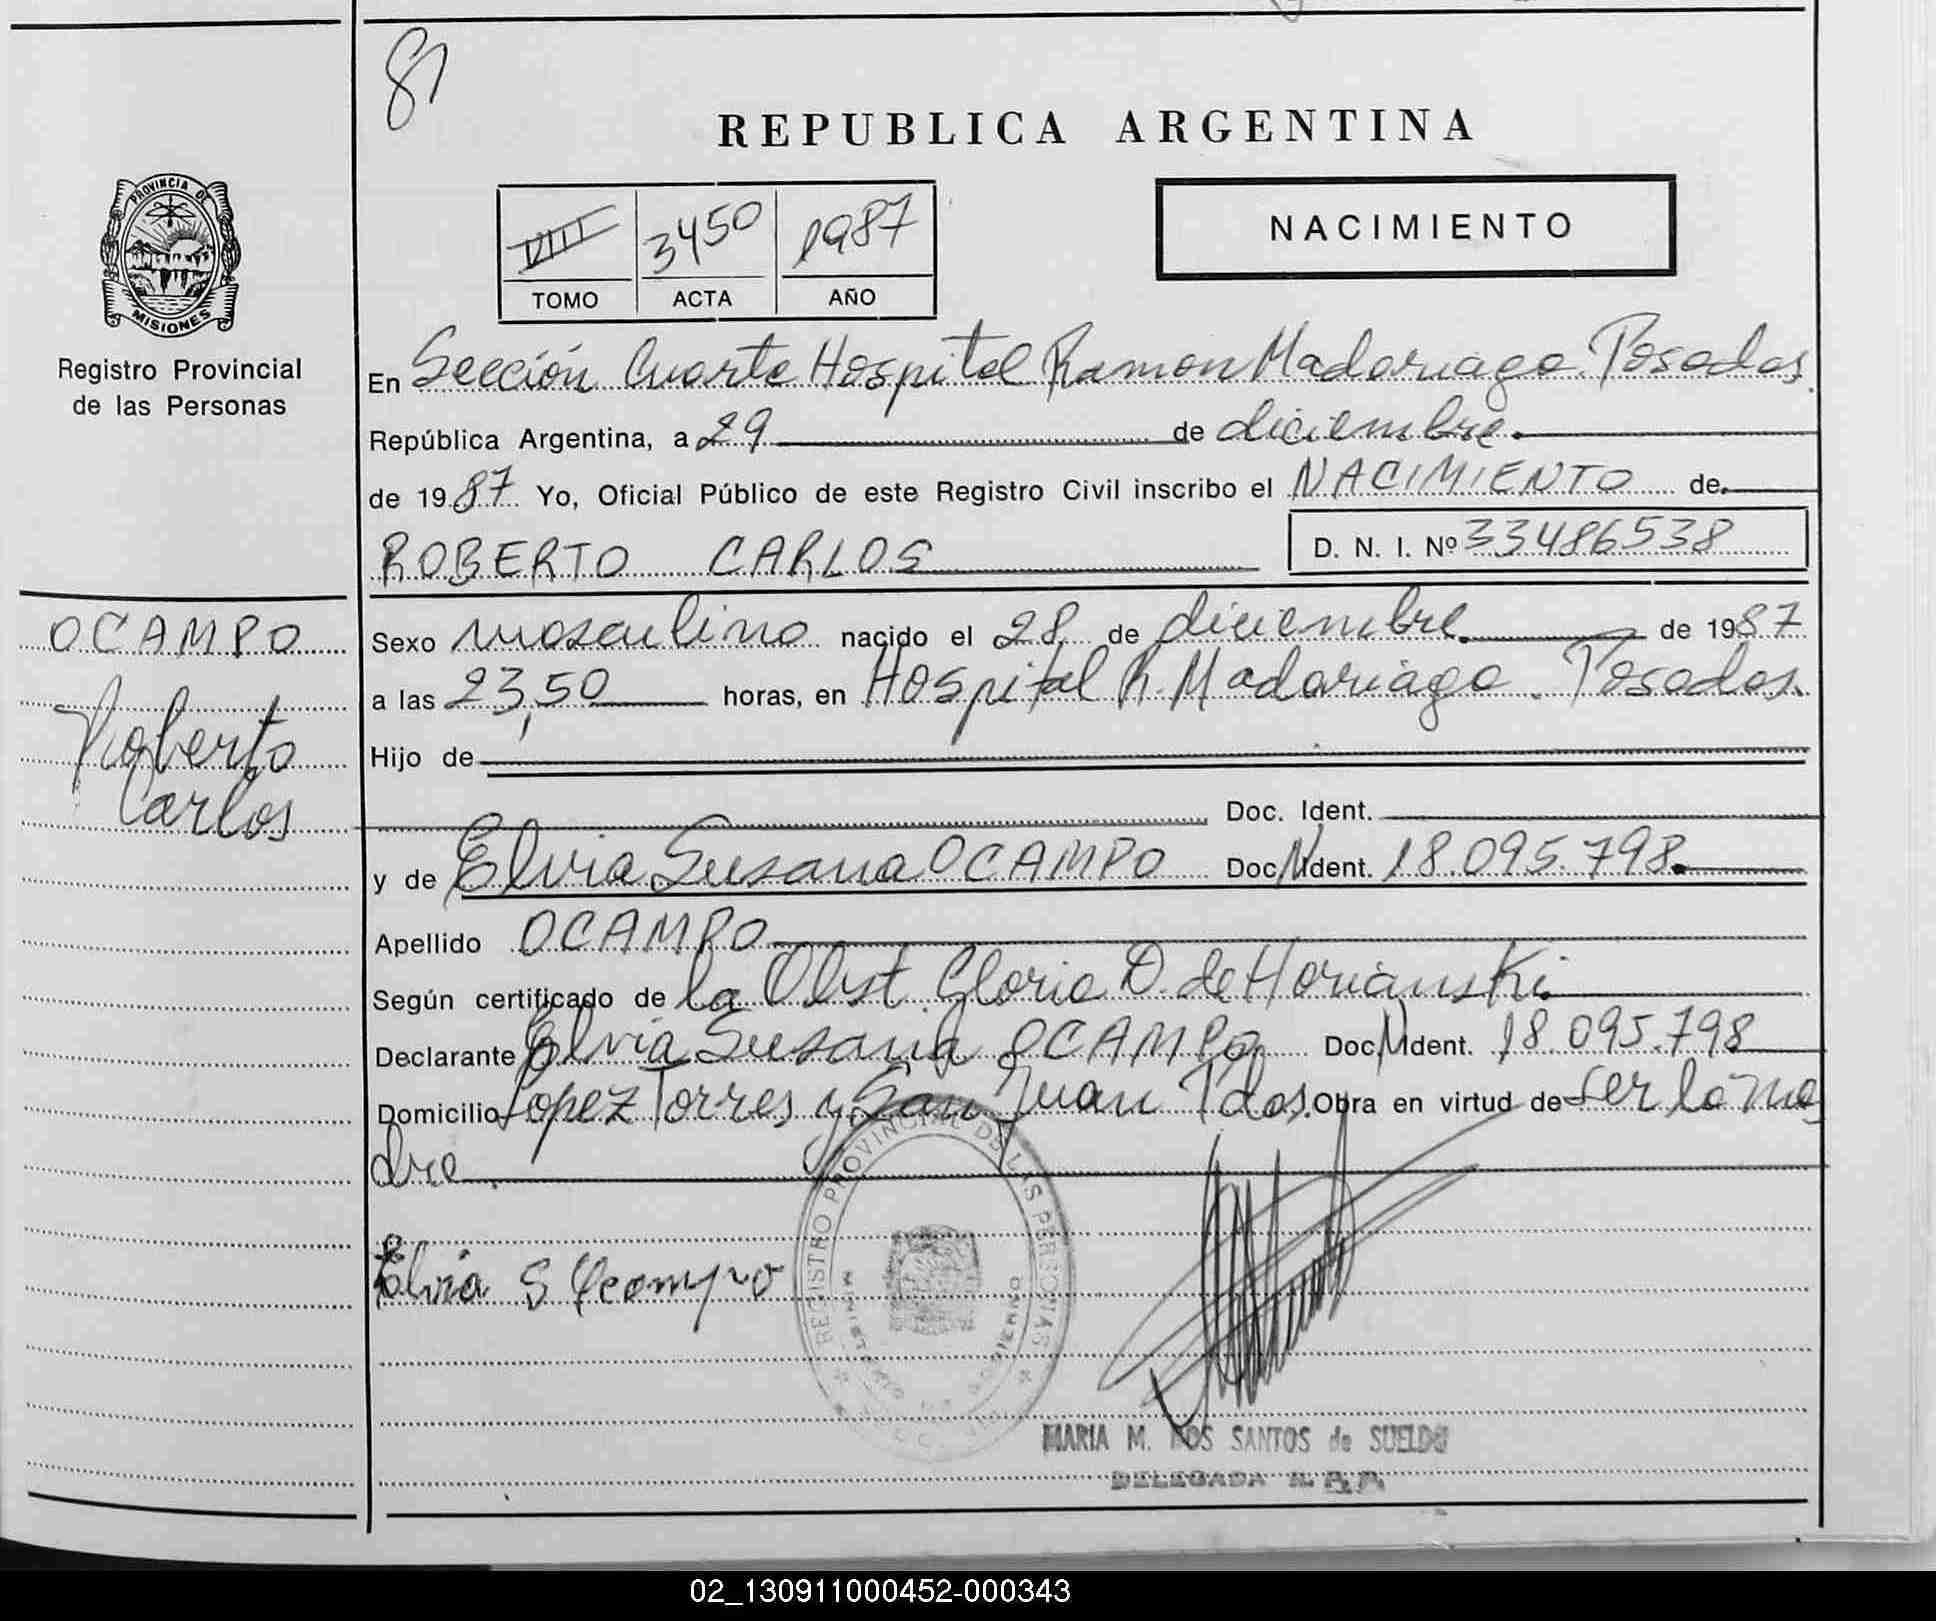 81
REPUBLICA ARGENTINA
PROVINCIA DE
MISIONES
Registro Provincial
de las Personas
VIII 3450 1987
TOMO ACTA AÑO
NACIMIENTO
En Sección Cuarta Hospital Ramon Madariaga. Posadas.
República Argentina, a 29 de diciembre.
de 1987 Yo, Oficial Público de este Registro Civil inscribo el NACIMIENTO de
ROBERTO CARLOS D. N. I. Nº 33486538
OCAMPO
Roberto
Carlos
Sexo masculino nacido el 28 de diciembre. de 1987
a las 23,50 horas, en Hospital R. Madariaga. Posadas.
Hijo de
Doc. Ident.
y de Elvia Susana OCAMPO Doc N Ident. 18.095.798.
Apellido OCAMPO
Según certificado de la Obst. Gloria D. de Horianski.
Declarante Elvia Susana OCAMPO Doc N Ident. 18.095.798
Domicilio Lopez Torres y San Juan Pdas. Obra en virtud de ser la ma
dre.
Elvia S Ocampo
REGISTRO PROVINCIAL DE LAS PERSONAS
MINISTERIO DE GOBIERNO
MARIA M. DOS SANTOS de SUELDO
DELEGADA
02_130911000452-000343